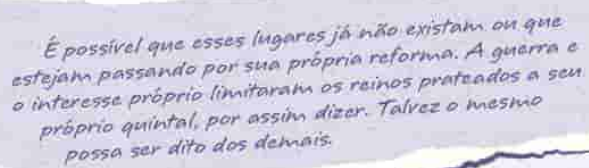 É possível que esses lugares já não existam ou que
estejam passando por sua própria reforma. A guerra e
o interesse próprio limitaram os reinos prateados a seu
próprio quintal, por assim dizer. Talvez o mesmo
possa ser dito dos demais.